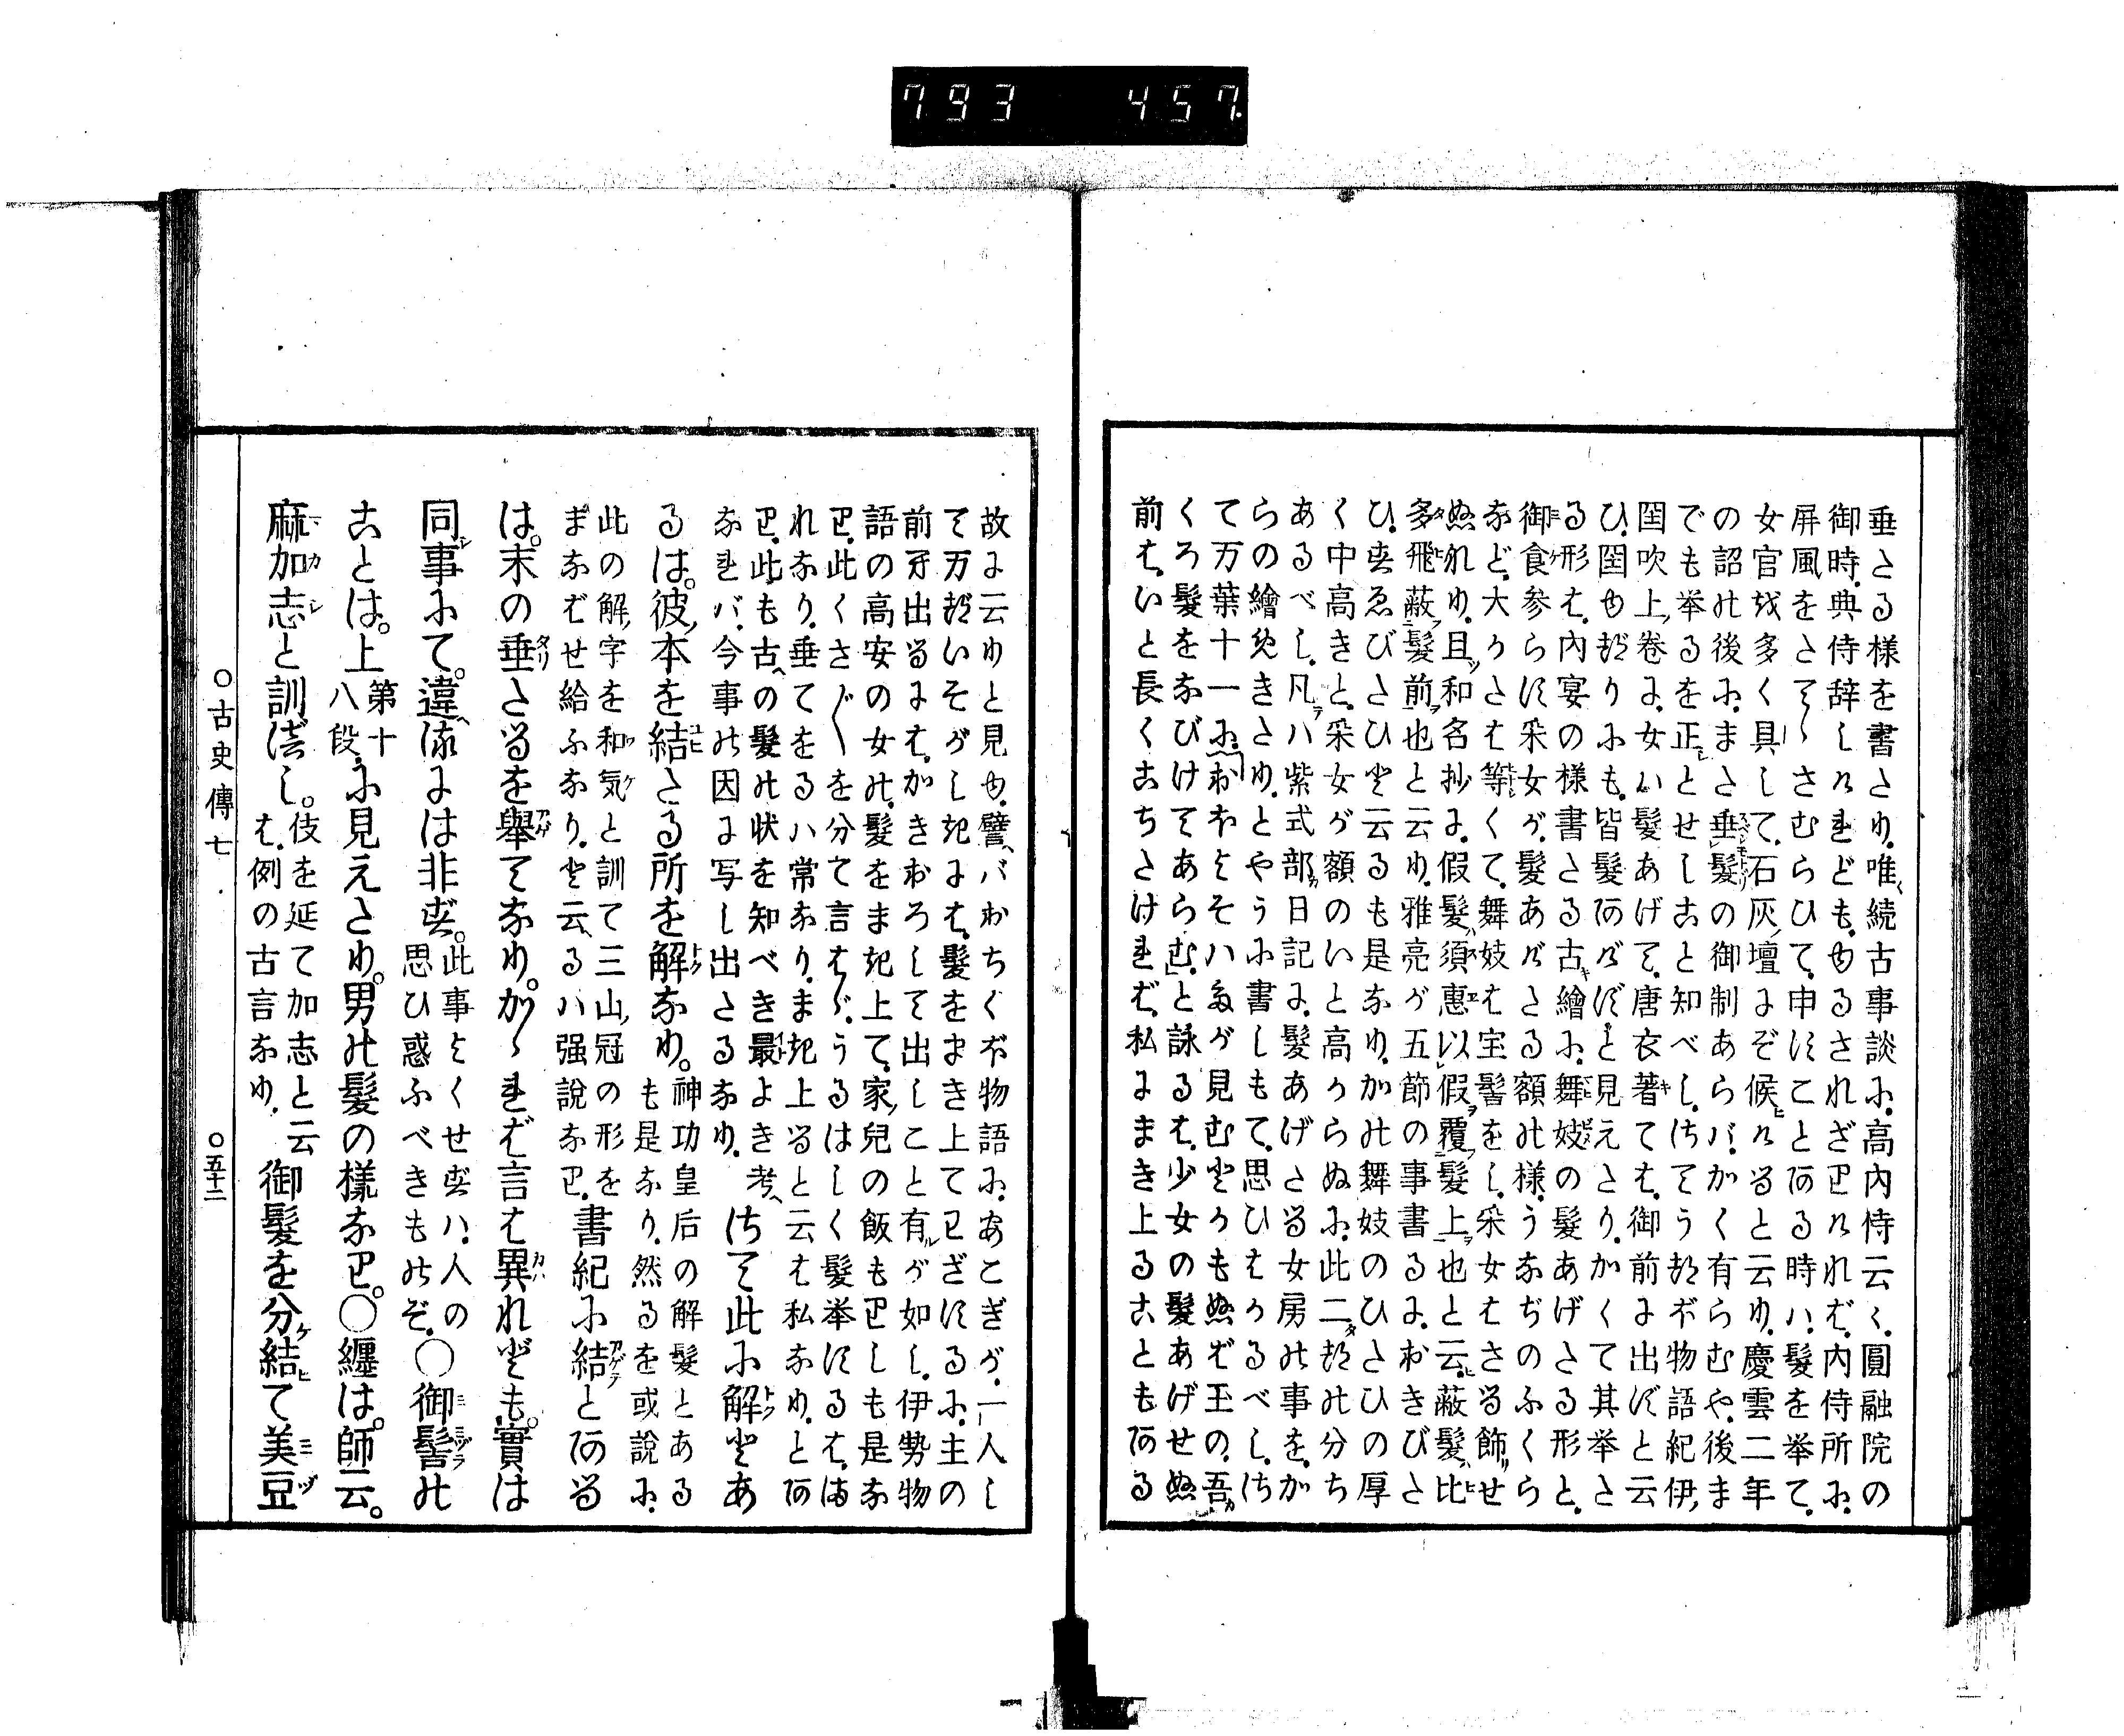 793 457
垂たる様を書たり。唯続古事談に、高内侍云く、圓融院の
御時、典侍辞しけれども、ゆるされざりければ、内侍所に、
屏風をたてゝさむらひて、申すことある時ハ、髪を挙て、
女官を多く具して、石灰壇にぞ候ける と云り。慶雲二年
の詔の後に、また垂髪の御制あらバ、かく有らむや、後ま
でも挙るを正とせしことと知べし。さてうつぼ物語紀伊
国吹上卷に、女い髪あげて、唐衣著ては、御前に出ずと云
ひ、国ゆづりにも、皆髪あげずと見えたり。かくて其挙た
る形は、内宴の様書たる古繪に、舞妓の髪あげたる形と、
御食参らす采女が、髪あげたる額の様、うなぢのふくら
など、大かたは等くて、舞妓は宝髻をし、采女はさる飾せ
ぬれり。且和名抄に、假髮須惠以假覆髮上也と云、蔽髮比
多飛蔽髮前也と云り。雅亮が五節の事書るに、おきびた
ひ、すゑびたひと云るも是なり。かの舞妓のひたひの厚
く中高きと、采女が額のいと高からぬに、此二つの分ち
あるべし。凡ハ紫式部日記に、髪あげたる女房の事を、か
らの繪めきたり、とやうに書しもて、思ひはかるべし。さ
て万葉十一に、おほよそハ誰が見むとかもぬば玉の、吾
くろ髪をなびけてあらむ」と詠るは、少女の髪あげせぬ
前は、いと長くこちたければ、私にまき上ることもある
故に云りと見ゆ。譬バおちくぼ物語に、あこぎが、一人し
て万づいそがしきには、髪をまき上てわざするに、主の
前に出るには、かきおろして出しこと有るが如し。伊勢物
語の高安の女の、髪をまき上て、家兒の飯もりしも是な
り。此くさ〴〵を分て言はゞ、うるはしく髪挙するは、ま
れなり。垂てをるハ常なり。まき上ると云は私なり。とあ
り。此も古の髪の状を知べき最よき考
なれバ、今事の因に写し出たるなり。さて此に解とあ
るは。彼本を結たる所を解なり。神功皇后の解髪とある
も是なり。然るを或説に、
此の解字を和気と訓て三山冠の形を
まなばせ給ふなり。と云るハ强說なり。書紀に結とある
は。末の垂たるを舉てなり。かゝれば言は異れども。實は
同事にて。違ふには非ず。此事よくせずハ、人の
思ひ惑ふべきものぞ。〇御髻の
ことは。上第十
八段に見えたり。男の髪の様なり。〇纒は。師云。
麻加志と訓べし。伎を延て加志と云
は、例の古言なり。御髮を分結て美豆
〇古史傳七 〇五十二